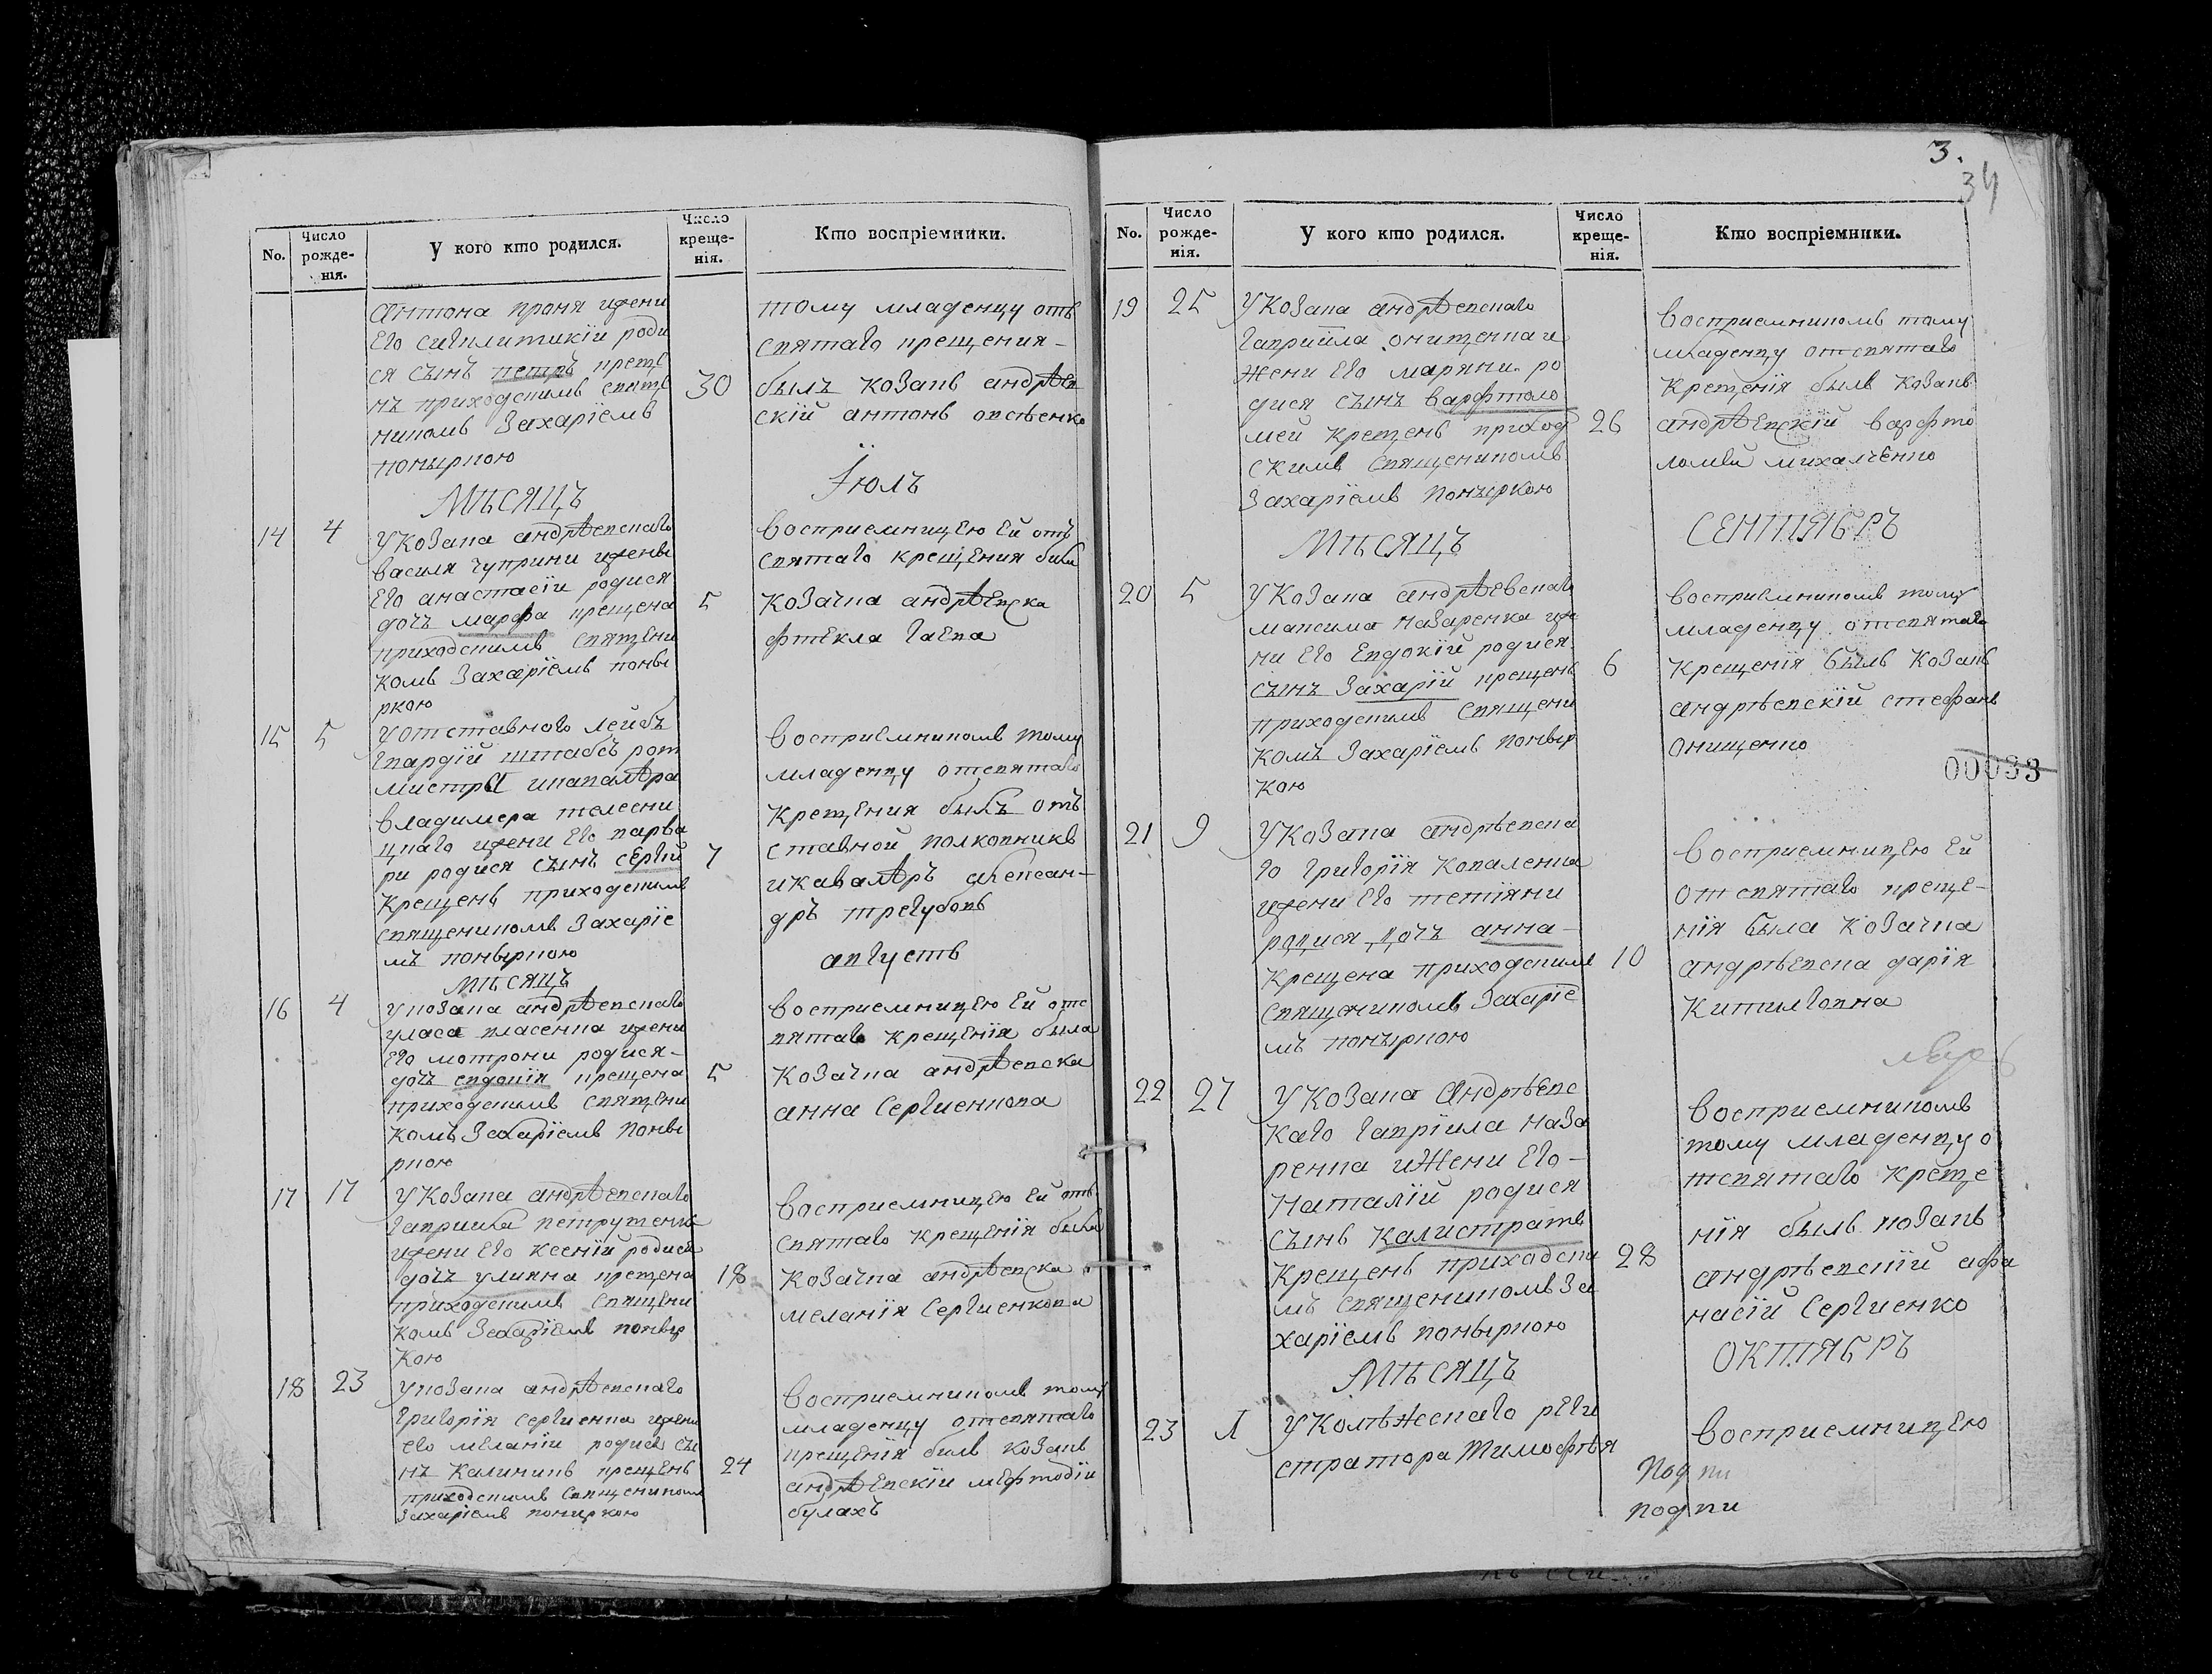 No.
Число рожде-нія.
У кого кто родился.
Число креще-нія.
Кто воспріемники.
Антона проня ижени
Его сиклитикіи роди
ся сынъ петръ крещ
нъ приходскимъ свяще
никомъ Захаріемъ
поныркою
30
тому младенцу отъ
святаго крещения-
былъ козакъ андрѣев
скій антонъ
МѢСЯЦЪ
Іюлъ
14
4
У Козака андрѣевскаго
василя чуприни ижены
Его анастасіи родися
дочъ марфа крещена
приходскимъ священи
комъ Захаріемъ поны
ркою
5
восприемницею Ей отъ
святаго крещения была
козачка андрѣевска
фтекла гаева
15
5
У отставного лейбъ
гвардій штабсъ рот
мистра икавалѣра
владимера телесни
цкаго ижени Его варва
ри родися сынъ сергій
крещенъ приходскимъ
священикомъ Захаріе
мъ поныркою
7
восприемникомъ тому
младенцу отсвятаго
крещения былъ отъ
ставной полковникъ
икавалѣръ алексан-
дръ трегубовъ
МѢСЯЦЪ
августъ
16
4
У козака андрѣевскаго
уласа власенка ижени
Его мотрони родися-
дочъ евдокія крещена
приходскимъ священи
комъ Захаріемъ поны
ркою
5
восприемницею Ей отс
вятаго крещенія была
козачка андрѣевска
анна Сергиенкова
17
17
У Козака андрѣевскаго
гавриила петрушенка
ижени Его ксеніи родися
дочъ улияна крещена
приходскимъ священи
комъ Захаріемъ поныр
кою
18
восприемницею Ей отъ
святаго крещенія была
козачка андрѣевска
меланія Сергиенкова
18
23
У козака андрѣевскаго
григорія сергиенка ижени
его меланіи родися сы
нъ Калиникъ крещенъ
приходскимъ священикомъ
Захаріемъ поныркою
24
восприемникомъ тому
младенцу отсвятаго
крещенія билъ козакъ
андрѣевскій мефтодіи
булахъ
3.
34
No.
Число рожде-нія.
У кого кто родился.
Число креще-нія.
Кто воспріемники.
19
25
У Козака андрѣевскаго
гавриила онищенка и
жени Его маряни ро
дися сынъ варфтоло
мей крещенъ приход
скимъ священикомъ
Захаріемъ понъркою
26
восприемникомъ тому
младенцу отсвятаго
крещенія былъ козакъ
андрѣевскій варфто
ломей михалченко
МѢСЯЦЪ
СЕНТЯБРЪ
20
5
У Козака андрѣевскаго
максима назаренка иже
ни Его Евдокій родися
сынъ Захарій крещенъ
приходскимъ священи
комъ Захаріемъ поныр
кою
6
восприемникомъ тому
младенцу отсвятаго
крещенія былъ козакъ
андрѣевскій стефанъ
онищенко
00033
21
9
У Козака андрѣевска
го григорія коваленка
ижени Его тетіяни
родися дочъ анна-
крещена приходскимъ
священикомъ Захаріе
мъ понъркою
10
восприемницею Ей
от святаго креще-
нія была козачка
андрѣевска дарія
22
27
У Козака Андрѣевс
каго гавріила наза
ренка ижени Его-
Наталій родися
сынъ Калистратъ
крещенъ приходски
мъ священикомъ За
харіемъ поныркою
28
восприемникомъ
тому младенцу о
тсвятаго креще
нія былъ козакъ
андрѣевскій афа
насій Сергиенко
МѢСЯЦЪ
ОКТЯБРЪ
23
1
У Колѣжскаго реги
стратора Тимофѣя
восприемницею
Подпи
подпи